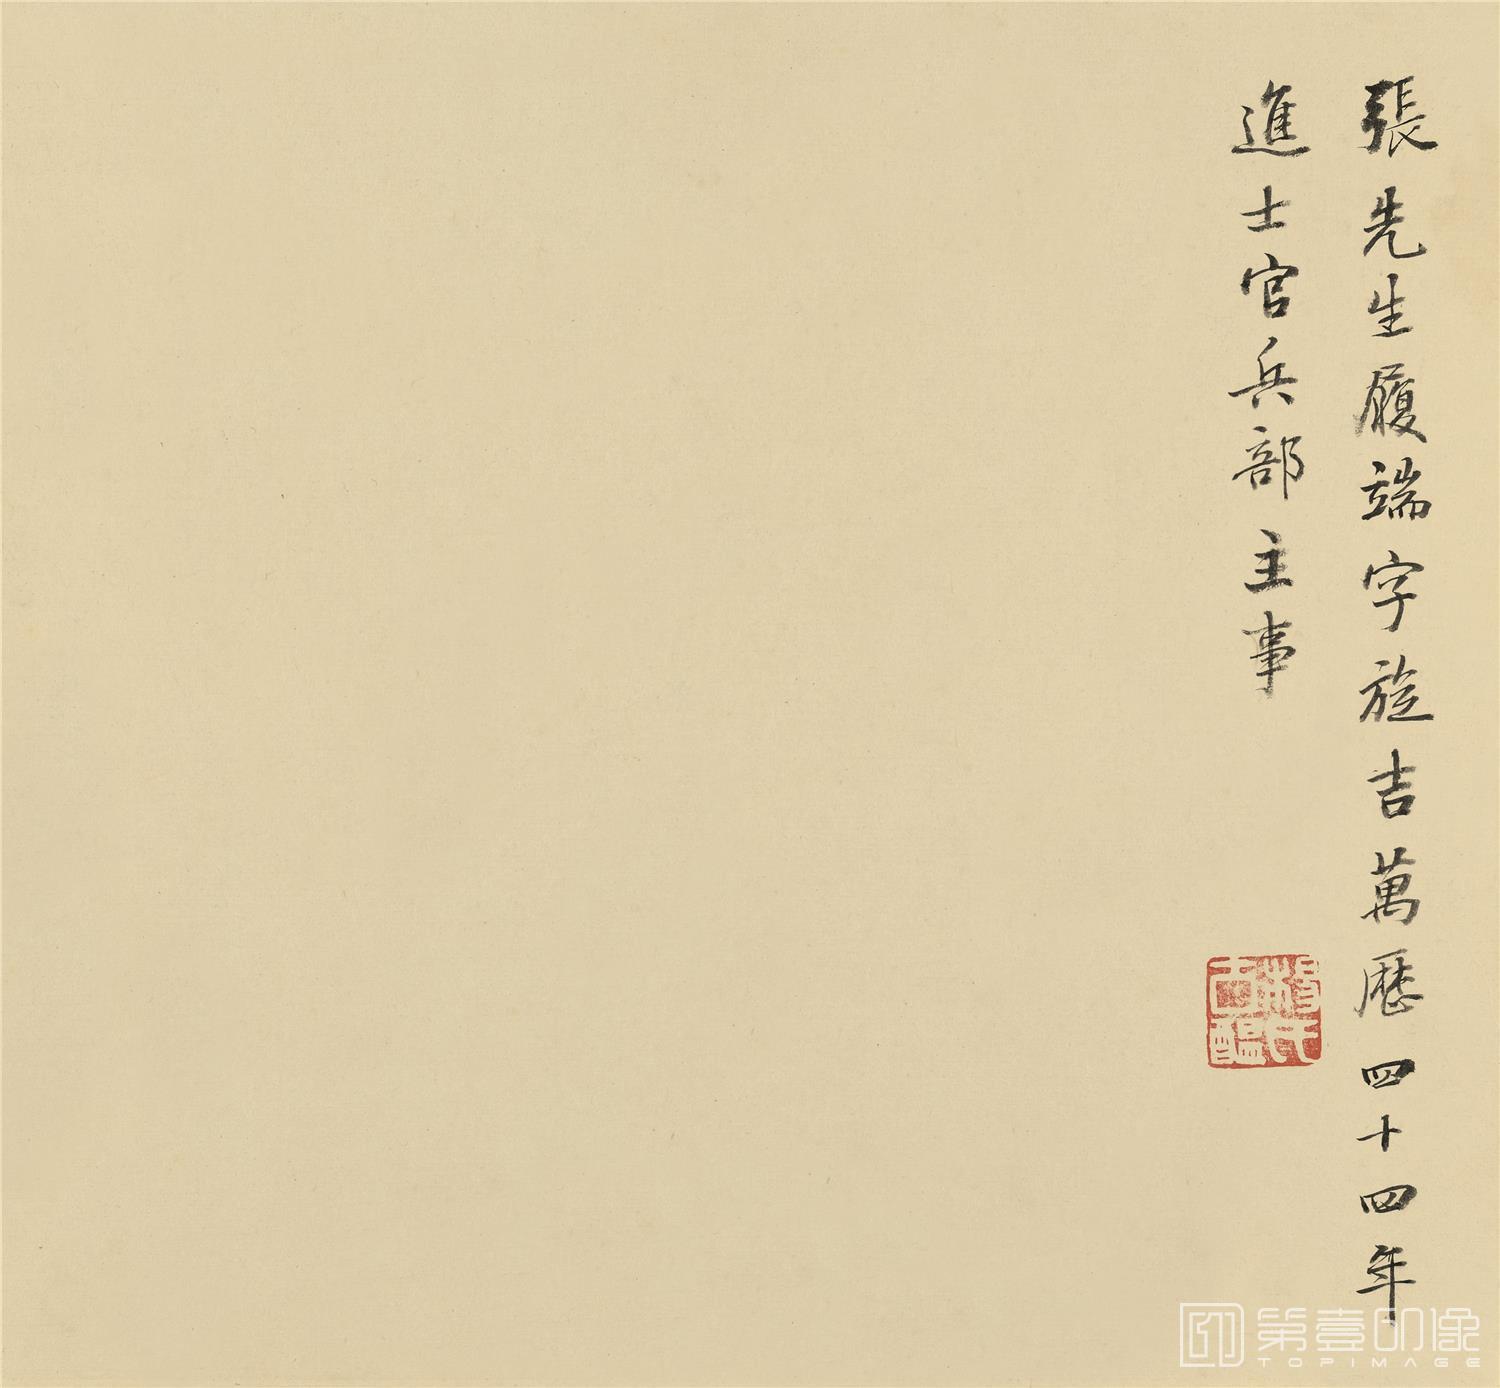 張先生履端字旋吉萬歷四十四年
進士官兵部主事
第壹印像
TOPIMAGE